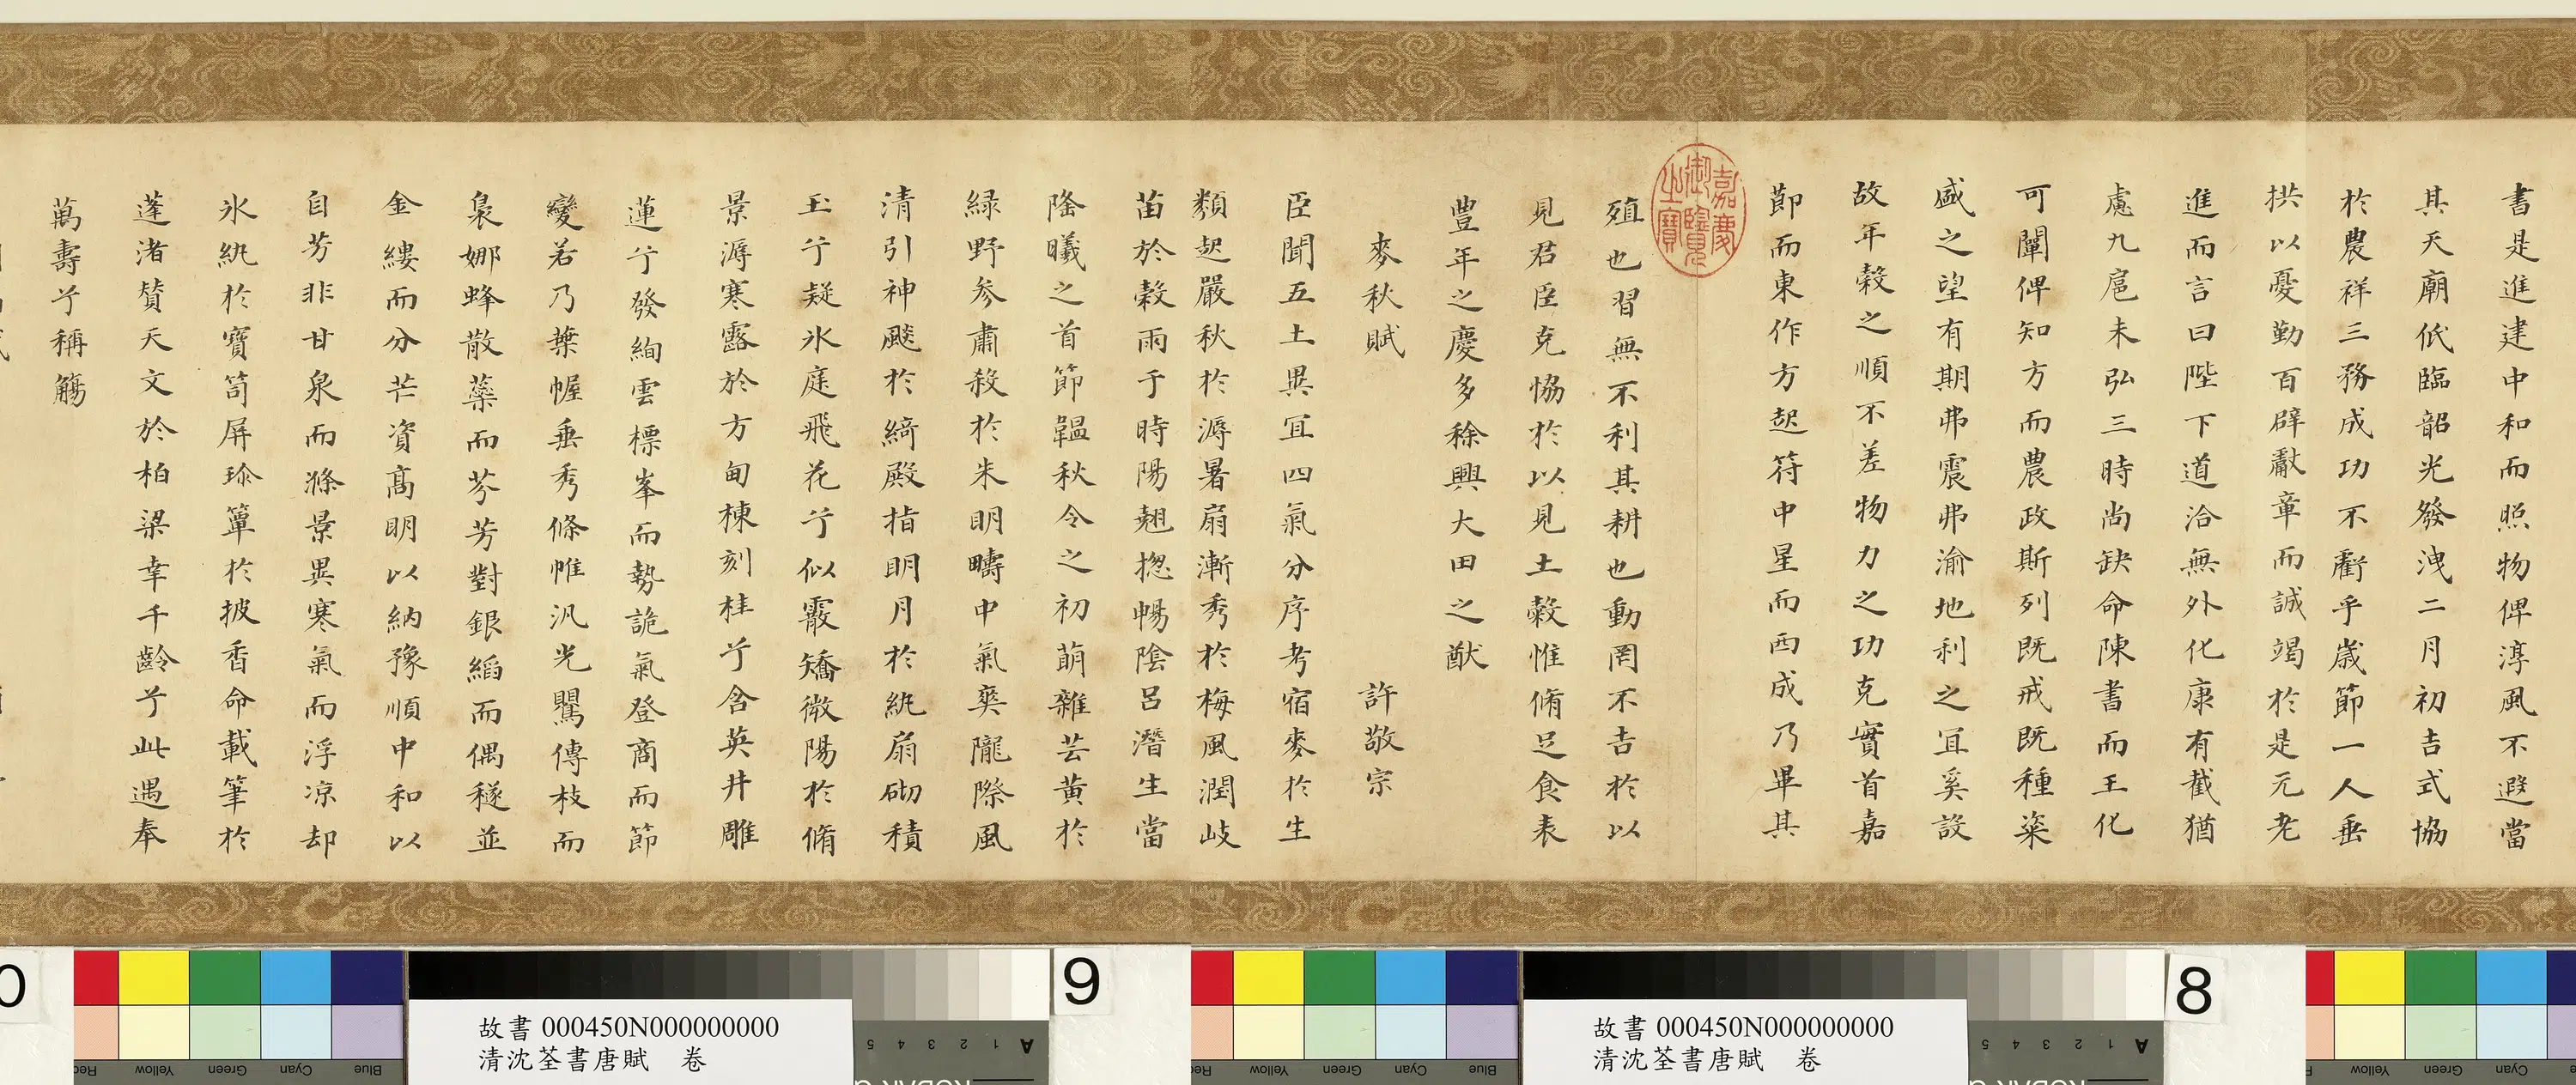 書是進建中和而照物俾淳風不遐當
其天廟伭臨韶光發洩二月初吉式協
於農祥三務成功不虧乎歳節一人垂
拱以憂勤百辟獻章而誠竭於是元老
進而言曰陛下道洽無外化康有截猶
慮九扈未弘三時尚缺命陳書而王化
可闡俾知方而農政斯列既戒既種粢
盛之望有期弗震弗渝地利之宜奚設
故年穀之順不差物力之功克實首嘉
節而東作方起符中星而西成乃畢其
殖也習無不利其耕也動罔不吉於以
見君臣克恊於以見土穀惟脩足食表
豐年之慶多稌興大田之猷
麥秋賦 許敬宗
臣聞五土異宜四氣分序考宿麥於生
類起嚴秋於溽暑扇漸秀於梅風潤岐
苗於穀雨于時陽翹揔暢陰呂潛生當
隆曦之首節韞秋令之初萌雜芸黄於
緑野参肅殺於朱明疇中氣爽隴際風
清引神飈於綺殿指明月於紈扇砌積
玉兮疑氷庭飛花兮似霰矯微陽於脩
景溽寒露於方甸棟刻桂兮含英井雕
蓮兮發絢雲標峯而勢詭氣登商而節
變若乃葉幄垂秀條帷汎光鸎傳枝而
裊娜蜂散蘂而芬芳對銀縚而偶穟並
金縷而分芒資髙明以納豫順中和以
自芳非甘泉而滌景異寒氣而浮凉却
氷紈於寶笥屏珍簟於披香命載筆於
蓬渚賛天文於柏梁幸千齡兮此遇奉
萬壽兮稱觴
嘉慶御覽之寶
故書 000450N000000000
清沈荃書唐賦 卷
故書 000450N000000000
清沈荃書唐賦 卷
9
8
0
Blue
Cyan
Green
Yellow
A 1 2 3 4 5
Blue
Cyan
Green
Yellow
A 1 2 3 4 5
Cyan
Green
Yellow